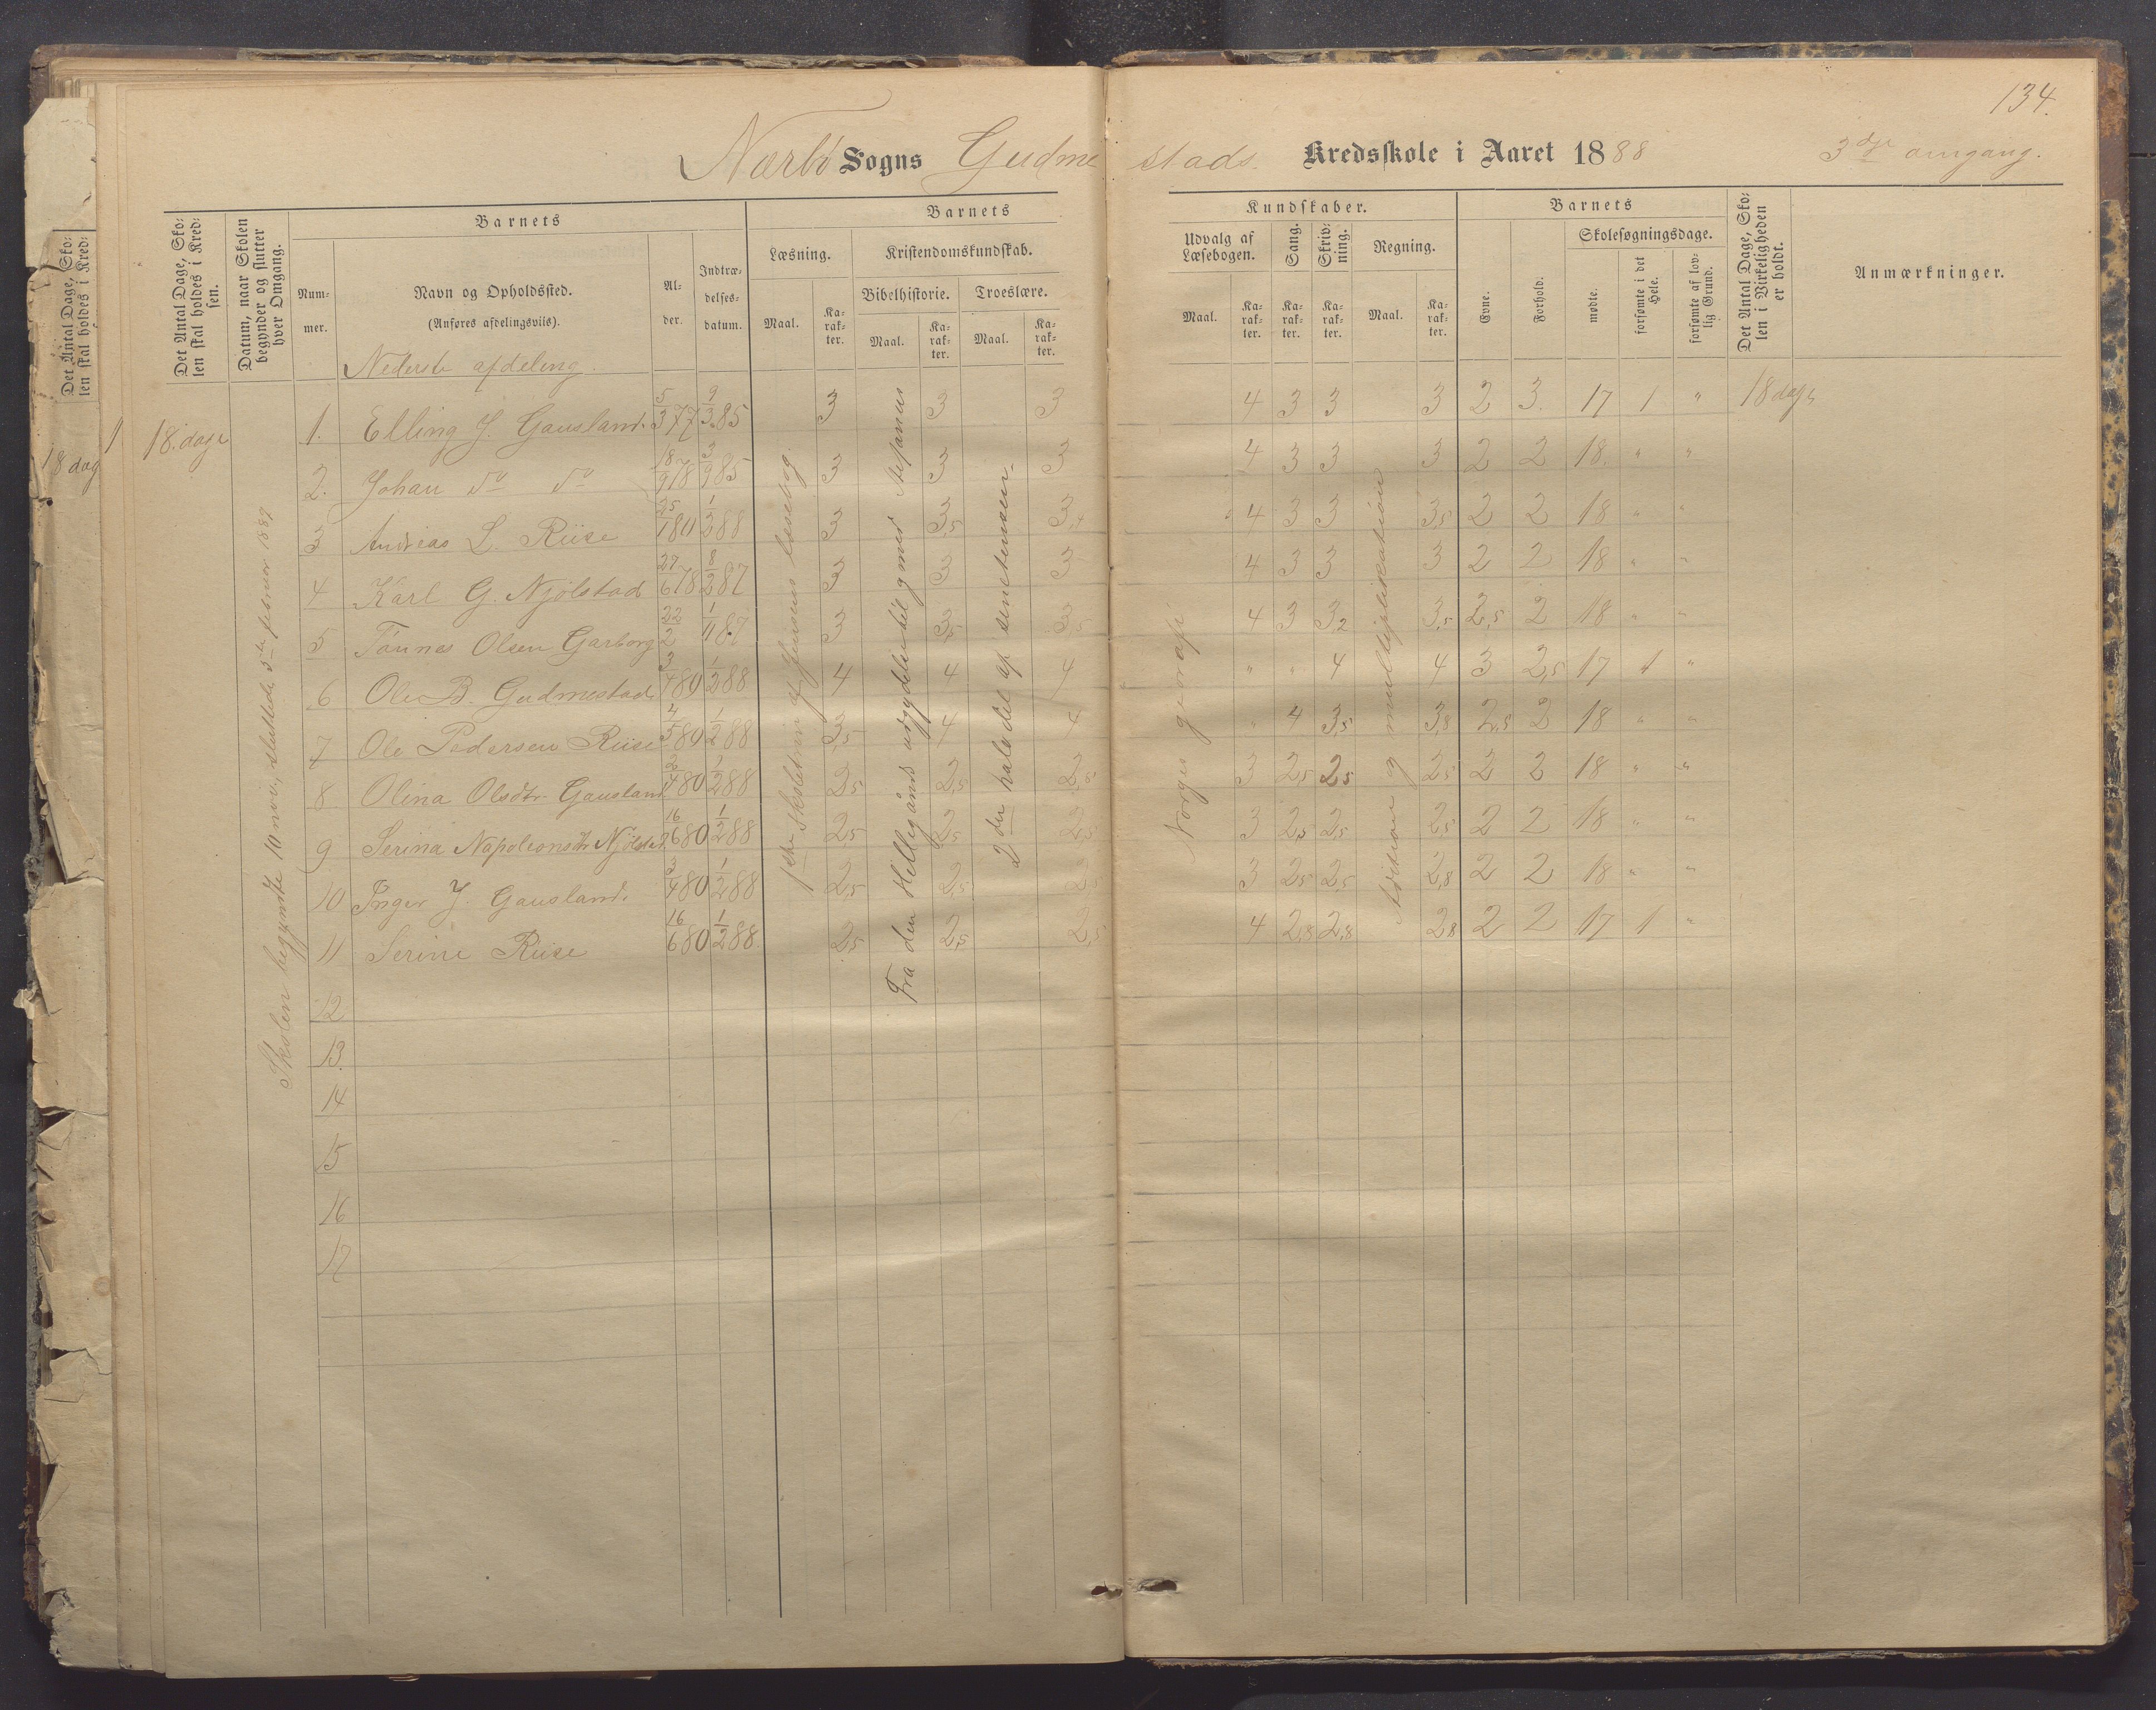 134.
Nærbø Sogns Gudmestads Kredsskole i Aaret 1888 3dje omgang.
Det Antal Dage, Skolen skal holdes i Kredsen.
Datum, naar Skolen begynder og slutter hver Omgang.
Barnets
Barnets
Kundskaber.
Barnets
Det Antal Dage, Skolen i Virkeligheden er holdt.
Anmærkninger.
Nummer.
Navn og Opholdssted.
(Anføres afdelingsviis).
Alder.
Indtrædelsesdatum.
Læsning.
Kristendomskundskab.
Udvalg af Læsebogen.
Sang.
Skrivning.
Regning.
Evne.
Forhold.
Skolesøgningsdage.
Maal.
Karakter.
Bibelhistorie.
Troeslære.
Maal.
Karakter.
Maal.
Karakter.
Maal.
Karakter.
Karakter.
Karakter.
Maal.
Karakter.
mødte.
forsømte i det Hele.
forsømte af lovlig Grund.
Det Antal Dage, Skolen skal holdes i Kred-
18 dag
Nederste afdeling.
18. dage
Skolen begyndte 10 nov, sluttede 5te februar 1887
1ste skoletrin af Jensens læsebog.
Fra den Helligånds udgydelse til og med Stefanus
2den halvdel af
Norges geografi
Adition og multiplikation
1. Elling J. Gausland. 5/3 77 9/3 85 3 3 3 4 3 3 3 2 3. 17 1 " 18 dage
2. Johan do do 18/9 78 3/9 85 3 3 3 4 3 3 3 2 2 18. " "
3 Andreas L. Riise 25/1 80 1/2 88 3 3,5 3,4 4 3 3 3,5 2 2 18 " "
4 Karl G. Njølstad 27/6 78 8/2 87 3 3 3 4 3 3 3 2 2 18 " "
5 Tønnes Olsen Garborg 22/2 1/11 87 3 3,5 3,5 4 3 3,2 3,5 2,5 2 18 " "
6 Ole B. Gudmestad 3/4 80 1/2 88 4 4 4 " " 4 4 3 2,5 17 1 "
7 Ole Pedersen Riise 4/5 80 1/2 88 3,5 4 4 " 4 3,5 3,8 2,8 2 18 " "
8 Olina Olsdtr. Gausland 2/4 80 1/2 88 2,5 2,5 2,5 3 2,5 2,5 2,5 2 2 18 " "
9 Serina Napoleonsdtr Njølstad 16/6 80 1/2 88 2,5 2,5 2,5 3 2,5 2,5 2,5 2 2 18 " "
10 Inger J. Gausland. 3/4 80 1/2 88 2,5 2,5 2,5 3 2,5 2,5 2,8 2 2 18 " "
11 Serine Riise 16/6 80 1/2 88. 2,5 2,5 2,5 4 2,8 2,8 2,8 2 2 17 1 "
12
13.
14
15
16
17